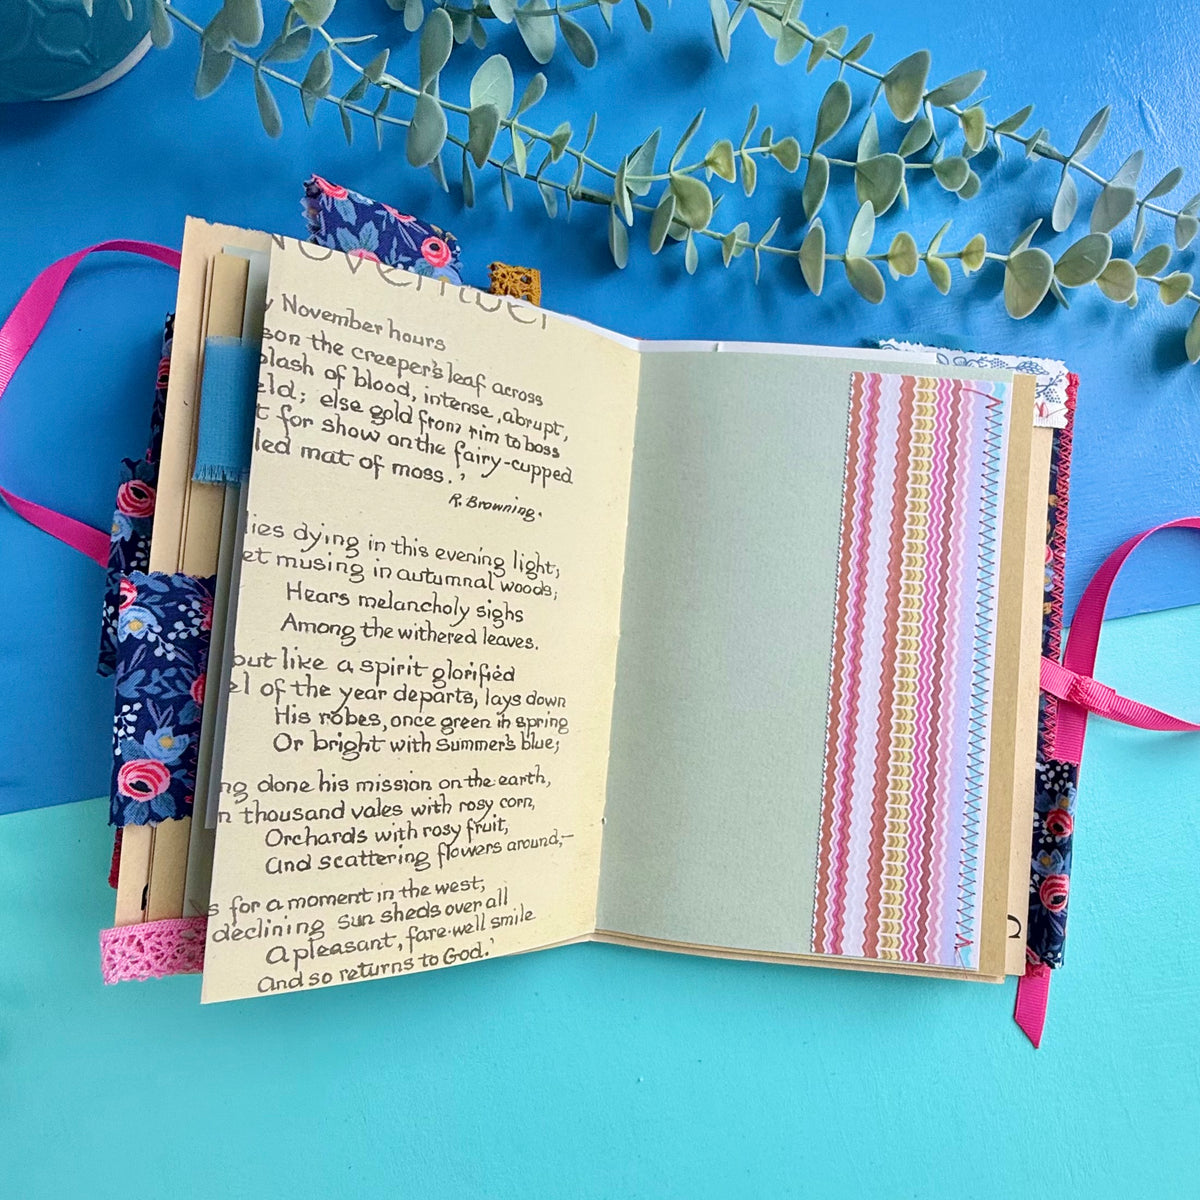 November
y November hours
son the creeper's leaf across
plash of blood, intense, abrupt,
eld; else gold from rim to boss
t for show on the fairy-cupped
led mat of moss.'
R. Browning.
lies dying in this evening light;
et musing in autumnal woods;
Hears melancholy sighs
Among the withered leaves.
but like a spirit glorified
el of the year departs, lays down
His robes, once green in spring
Or bright with Summer's blue;
ng done his mission on the earth,
n thousand vales with rosy corn,
Orchards with rosy fruit,
And scattering flowers around,—
s for a moment in the west,
declining sun sheds over all
A pleasant, fare-well smile
And so returns to God.'